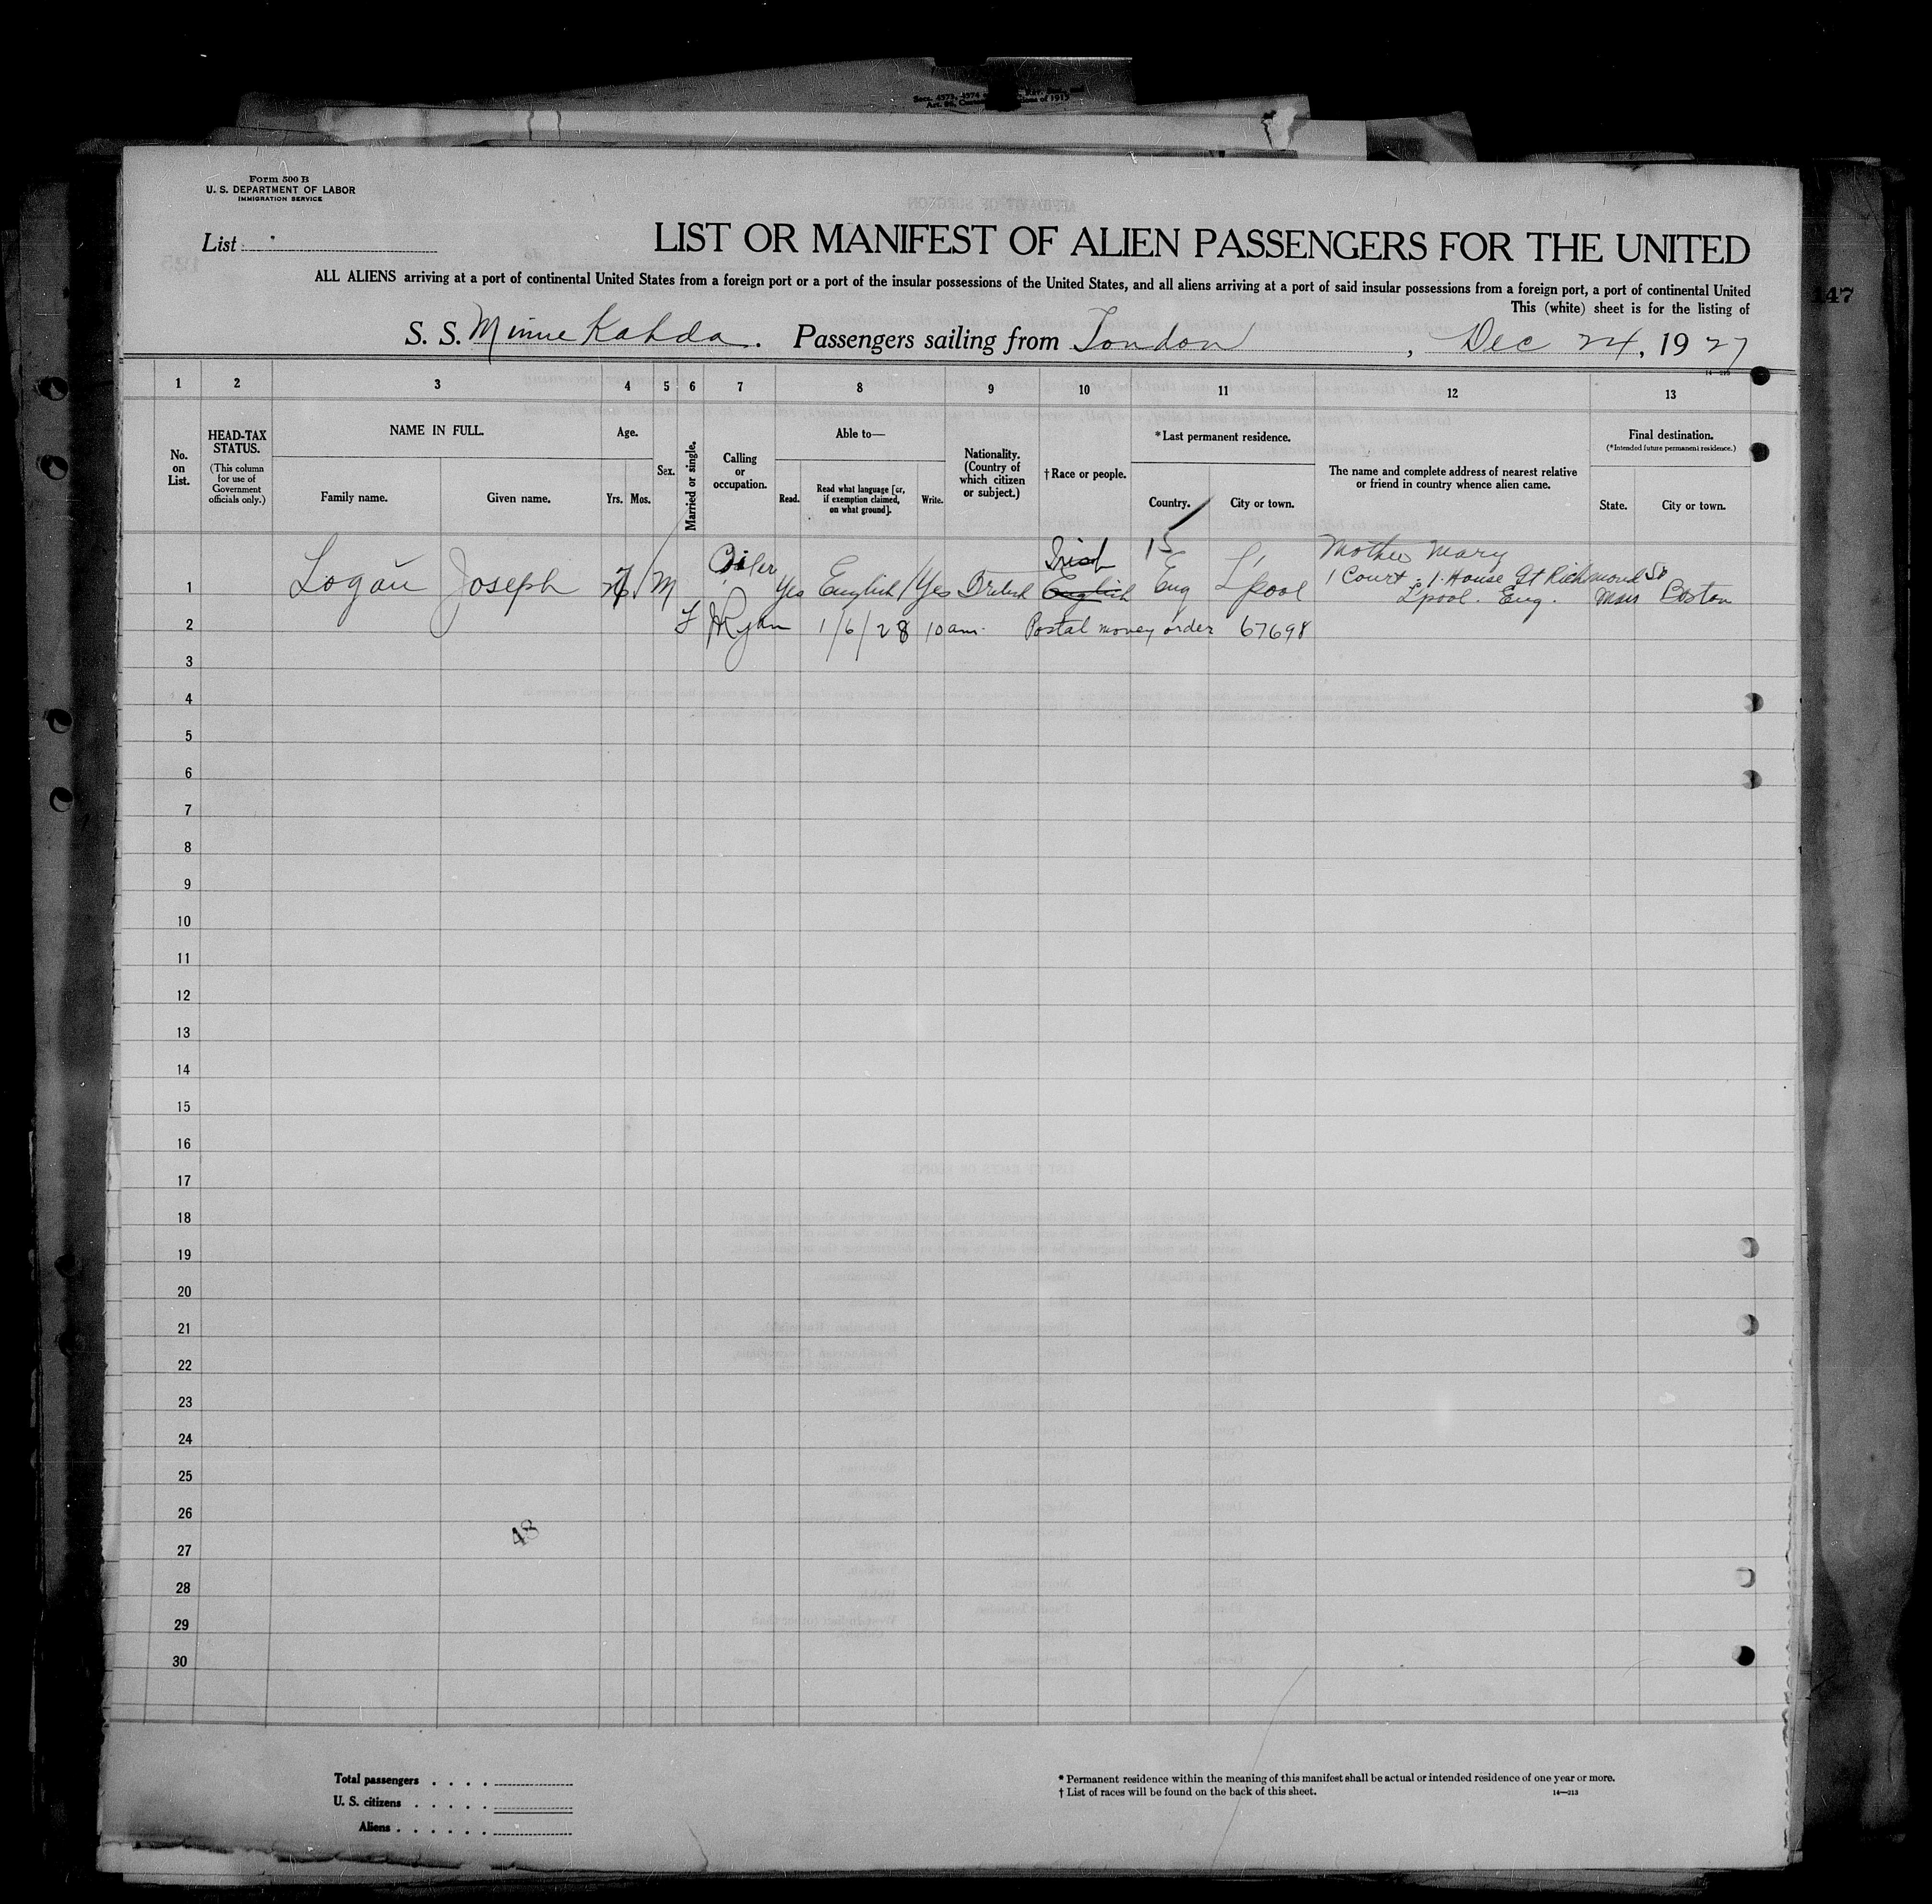 Form 500 B
U. S. DEPARTMENT OF LABOR
IMMIGRATION SERVICE
List
LIST OR MANIFEST OF ALIEN PASSENGERS FOR THE UNITED
ALL ALIENS arriving at a port of continental United States from a foreign port or a port of the insular possessions of the United States, and all aliens arriving at a port of said insular possessions from a foreign port, a port of continental United
This (white) sheet is for the listing of
147
S. S. Minne Kahda. Passengers sailing from London, Dec 24, 1927
1 2 3 4 5 6 7 8 9 10 11 12 13
No. on List.
HEAD-TAX STATUS.
(This column for use of Government officials only.)
NAME IN FULL.
Family name. Given name.
Age.
Yrs. Mos.
Sex.
Married or single.
Calling or occupation.
Able to—
Read. Read what language [or, if exemption claimed, on what ground]. Write.
Nationality. (Country of which citizen or subject.)
† Race or people.
*Last permanent residence.
Country. City or town.
The name and complete address of nearest relative or friend in country whence alien came.
Final destination.
(*Intended future permanent residence.)
State. City or town.
Oiler Irish 15 Mother Mary
1 Logan Joseph M Yes English Yes British English Eng L'pool 1 Court 1 House Gt Richmond St
L'pool. Eng. Mass Boston
2 Ryan 1/6/28 10 am. Postal money order 67698
3
4
5
6
7
8
9
10
11
12
13
14
15
16
17
18
19
20
21
22
23
24
25
26
48
27
28
29
30
Total passengers . . . .
U. S. citizens . . . . .
Aliens . . . . . .
* Permanent residence within the meaning of this manifest shall be actual or intended residence of one year or more.
† List of races will be found on the back of this sheet.
14—213